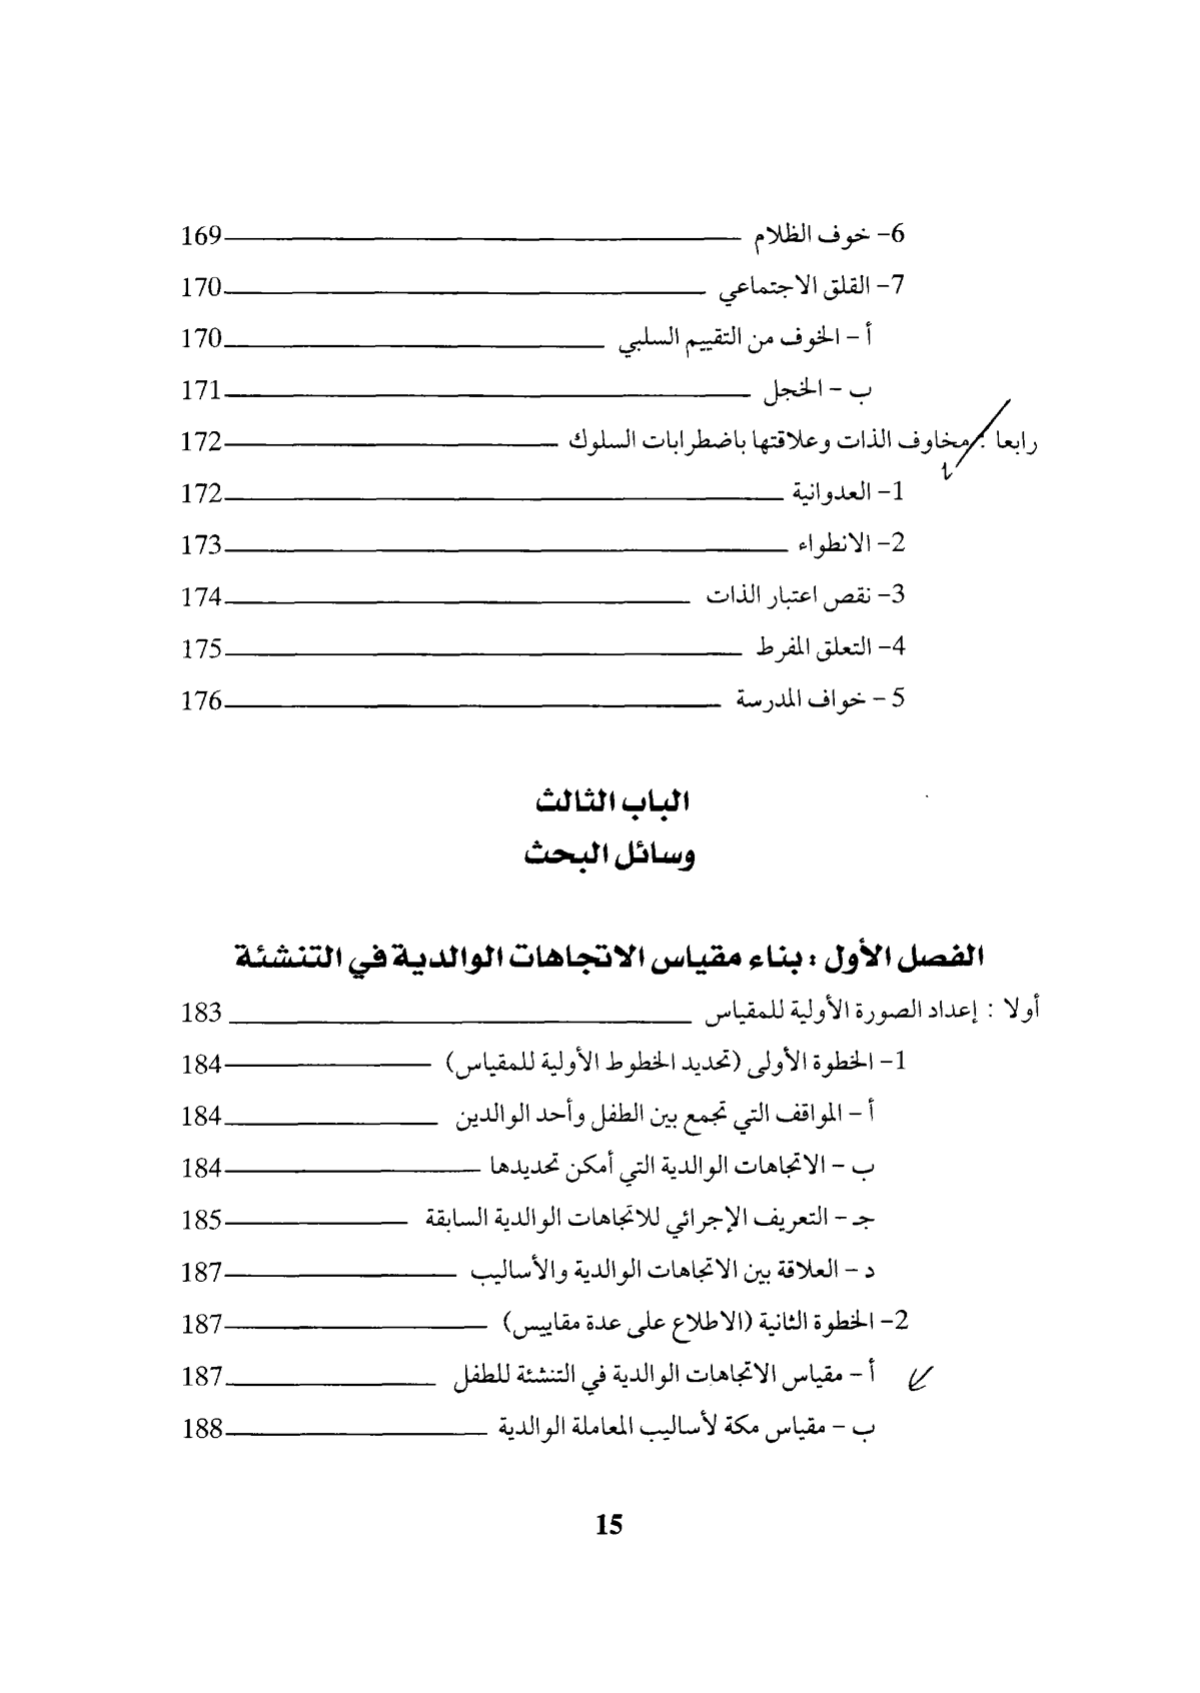 6- خوف الظلام 169
7- القلق الاجتماعي 170
أ - الخوف من التقييم السلبي 170
ب - الخجل 171
رابعا : مخاوف الذات وعلاقتها باضطرابات السلوك 172
1- العدوانية 172
2- الانطواء 173
3- نقص اعتبار الذات 174
4- التعلق المفرط 175
5 - خواف المدرسة 176
الباب الثالث
وسائل البحث
الفصل الأول : بناء مقياس الاتجاهات الوالدية في التنشئة
أولا : إعداد الصورة الأولية للمقياس 183
1- الخطوة الأولى (تحديد الخطوط الأولية للمقياس) 184
أ - المواقف التي تجمع بين الطفل وأحد الوالدين 184
ب - الاتجاهات الوالدية التي أمكن تحديدها 184
جـ - التعريف الإجرائي للاتجاهات الوالدية السابقة 185
د - العلاقة بين الاتجاهات الوالدية والأساليب 187
2- الخطوة الثانية (الاطلاع على عدة مقاييس) 187
أ - مقياس الاتجاهات الوالدية في التنشئة للطفل 187
ب - مقياس مكة لأساليب المعاملة الوالدية 188
15